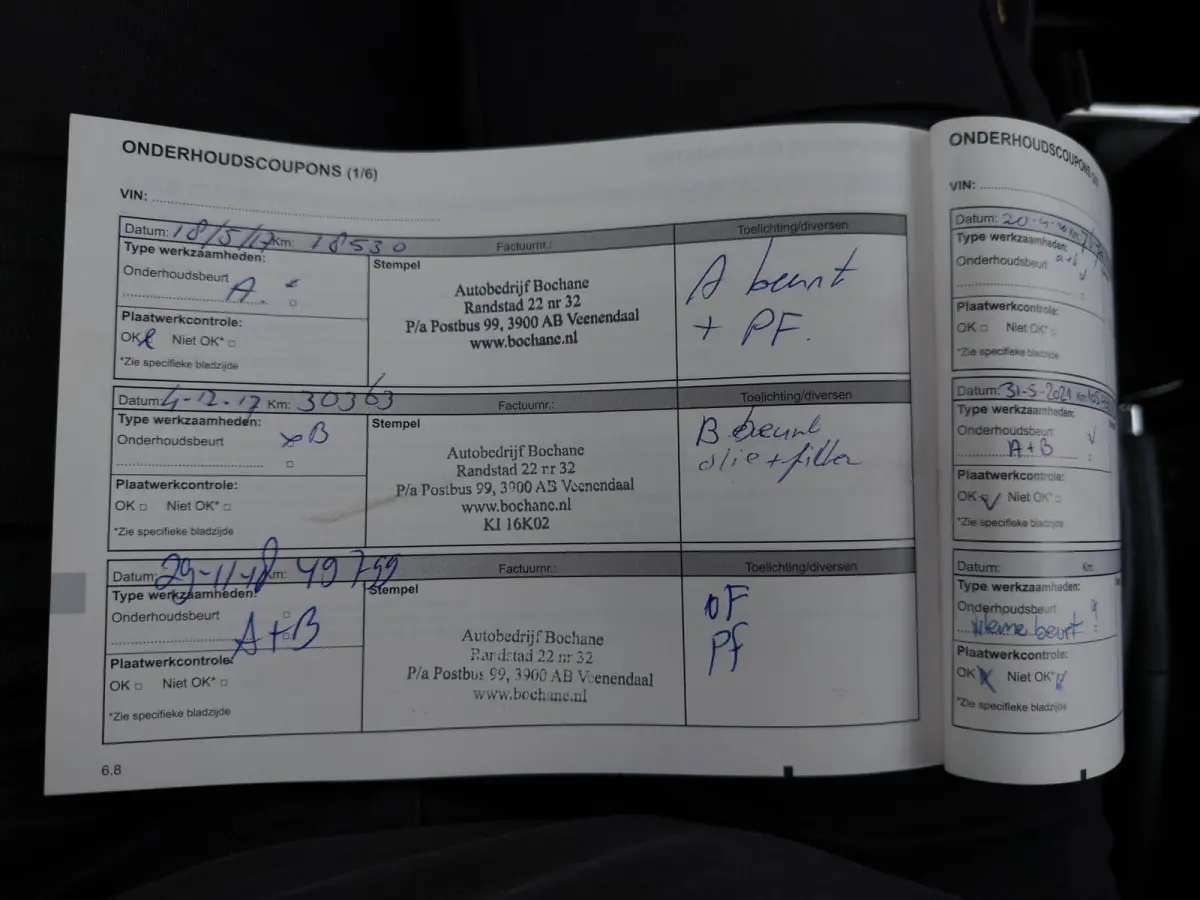 ONDERHOUDSCOUPONS (1/6)
VIN:
Datum: 18/5/17 Km: 18530 Factuurnr.: Toelichting/diversen
Type werkzaamheden:
Onderhoudsbeurt A
Stempel
Autobedrijf Bochane
Randstad 22 nr 32
P/a Postbus 99, 3900 AB Veenendaal
www.bochane.nl
A beurt
+ PF.
Plaatwerkcontrole:
OK Niet OK*
*Zie specifieke bladzijde
Datum: 4-12-17 Km: 30363 Factuurnr.: Toelichting/diversen
Type werkzaamheden:
Onderhoudsbeurt B
Stempel
Autobedrijf Bochane
Randstad 22 nr 32
P/a Postbus 99, 3900 AB Veenendaal
www.bochane.nl
KI 16K02
B beurt
olie + filter
Plaatwerkcontrole:
OK Niet OK*
*Zie specifieke bladzijde
Datum: 29-11-18 Km: 49799 Factuurnr.: Toelichting/diversen
Type werkzaamheden:
Onderhoudsbeurt
A+B
Stempel
Autobedrijf Bochane
Randstad 22 nr 32
P/a Postbus 99, 3900 AB Veenendaal
www.bochane.nl
OF
Pf
Plaatwerkcontrole:
OK Niet OK*
*Zie specifieke bladzijde
6.8
ONDERHOUDSCOUPONS
VIN:
Datum: Km:
Type werkzaamheden:
Onderhoudsbeurt a+b
Plaatwerkcontrole:
OK Niet OK*
*Zie specifieke bladzijde
Datum: 31-5-2021 Km
Type werkzaamheden:
Onderhoudsbeurt
A+B
Plaatwerkcontrole:
OK Niet OK*
*Zie specifieke bladzijde
Datum: Km:
Type werkzaamheden:
Onderhoudsbeurt
kleine beurt
Plaatwerkcontrole:
OK Niet OK*
*Zie specifieke bladzijde